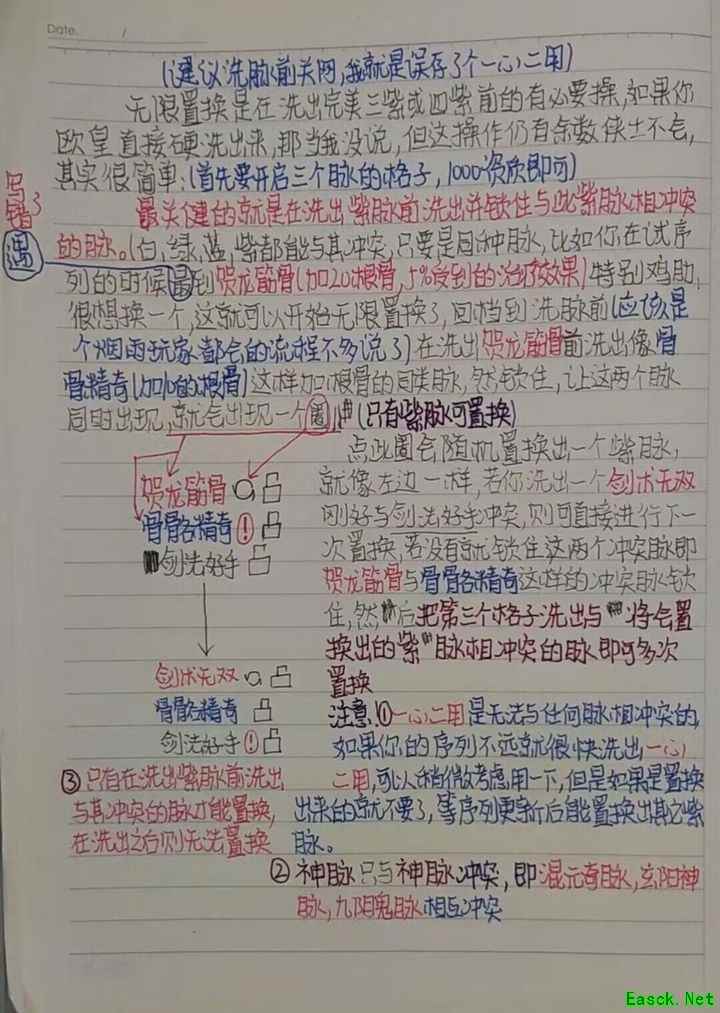 Date. /
(建议洗脉前关网,我就是误存了个一心二用)
无限置换是在洗出完美三紫或四紫前的有必要操,如果你
欧皇直接硬洗出来,那当我没说,但这操作仍有余数侠士不会,
其实很简单:(首先要开启三个脉的格子,1000资质即可)
最关键的就是在洗出紫脉前洗出并锁住与此紫脉相冲突
写错了
遇
的脉。(白,绿,蓝,紫都能与其冲突,只要是同种脉,比如你在试序
列的时候遇到贺龙筋骨(加20根骨,5%受到的治疗效果)特别鸡肋,
很想换一个,这就可以开始无限置换了,回档到洗脉前(应该是
个烟雨玩家都会的流程不多说了)在洗出贺龙筋骨前洗出像骨
骨精奇(加小的根骨)这样加根骨的同类脉,然锁住,让这两个脉
同时出现,就会出现一个圈,(只有紫脉可置换)
点此圈会随机置换出一个紫脉,
贺龙筋骨
就像左边一样,若你洗出一个剑术无双
骨骼精奇!
刚好与剑法好手冲突,则可直接进行下一
剑法好手
次置换,若没有就锁住这两个冲突脉即
贺龙筋骨与骨骼精奇这样的冲突脉锁
住,然后把第三个格子洗出与将会置
换出的紫脉相冲突的脉即可多次
剑术无双
置换
骨骼精奇
注意!①一心二用是无法与任何脉相冲突的,
剑法好手!
如果你的序列不远就很快洗出一心
③只有在洗出紫脉前洗出
二用,可以稍微考虑用一下,但是如果是置换
与其冲突的脉才能置换,
出来的就不要了,等序列更新后能置换出其它紫
在洗出之后则无法置换
脉。
②神脉只与神脉冲突,即混元奇脉,玄阳神
脉,九阴鬼脉相互冲突
Easck.Net